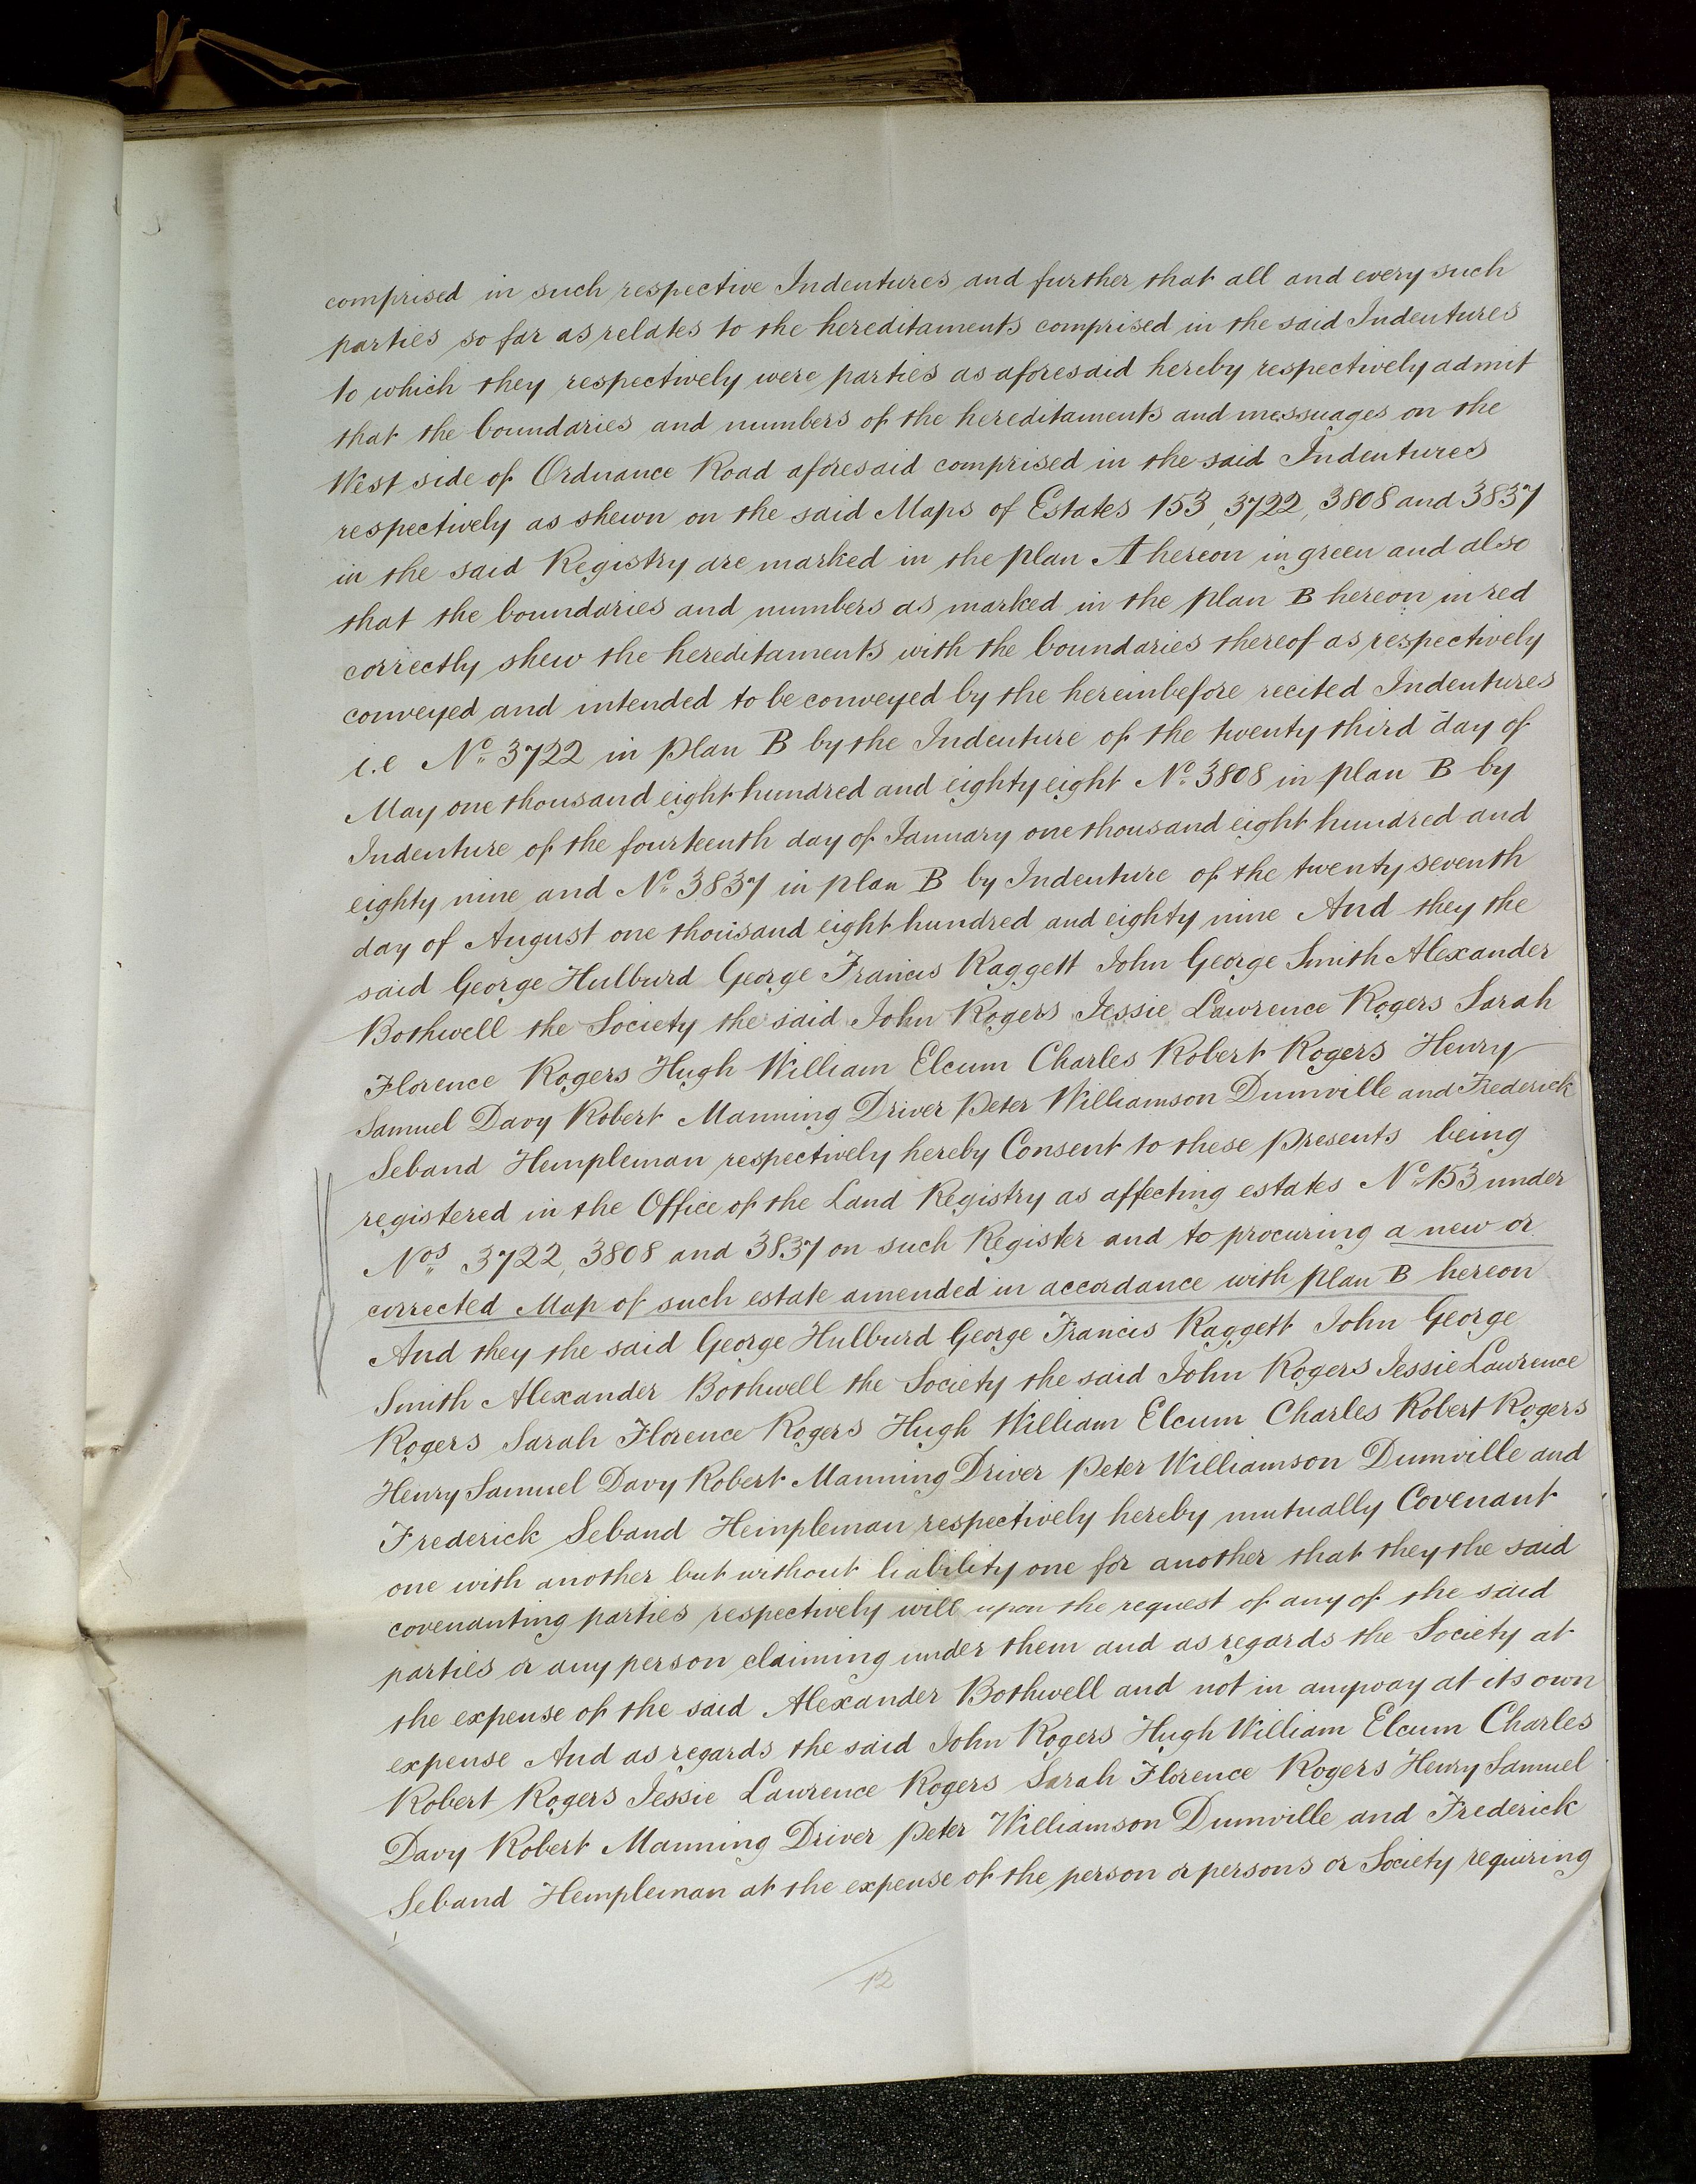 comprised in such respective Indentures and further that all and every such
parties so far as relates to the hereditaments comprised in the said Indentures
to which they respectively were parties as aforesaid hereby respectively admit
that the boundaries and numbers of the hereditaments and messuages on the
West side of Ordnance Road aforesaid comprised in the said Indentures
respectively as shewn on the said Maps of Estates 153, 3722, 3808 and 3837
in the said Registry are marked in the plan A hereon in green and also
that the boundaries and numbers as marked in the plan B hereon in red
correctly shew the hereditaments with the boundaries thereof as respectively
conveyed and intended to be conveyed by the hereinbefore recited Indentures
i.e No. 3722 in plan B by the Indenture of the twenty third day of
May one thousand eight hundred and eighty eight No. 3808 in plan B by
Indenture of the fourteenth day of January one thousand eight hundred and
eighty nine and No. 3837 in plan B by Indenture of the twenty seventh
day of August one thousand eight hundred and eighty nine And they the
said George Hulburd George Francis Raggett John George Smith Alexander
Bothwell the Society the said John Rogers Jessie Lawrence Rogers Sarah
Florence Rogers Hugh William Elcum Charles Robert Rogers Henry
Samuel Davy Robert Manning Driver Peter Williamson Dumville and Frederick
Seband Hempleman respectively hereby Consent to these presents being
registered in the Office of the Land Registry as affecting estates No. 153 under
Nos. 3722, 3808 and 3837 on such Register and to procuring a new or
corrected Map of such estate amended in accordance with plan B hereon
And they the said George Hulburd George Francis Raggett John George
Smith Alexander Bothwell the Society the said John Rogers Jessie Lawrence
Rogers Sarah Florence Rogers Hugh William Elcum Charles Robert Rogers
Henry Samuel Davy Robert Manning Driver Peter Williamson Dumville and
Frederick Seband Hempleman respectively hereby mutually Covenant
one with another but without liability one for another that they the said
covenanting parties respectively will upon the request of any of the said
parties or any person claiming under them and as regards the Society at
the expense of the said Alexander Bothwell and not in anyway at its own
expense And as regards the said John Rogers Hugh William Elcum Charles
Robert Rogers Jessie Lawrence Rogers Sarah Florence Rogers Henry Samuel
Davy Robert Manning Driver Peter Williamson Dumville and Frederick
Seband Hempleman at the expense of the person or persons or Society requiring
12